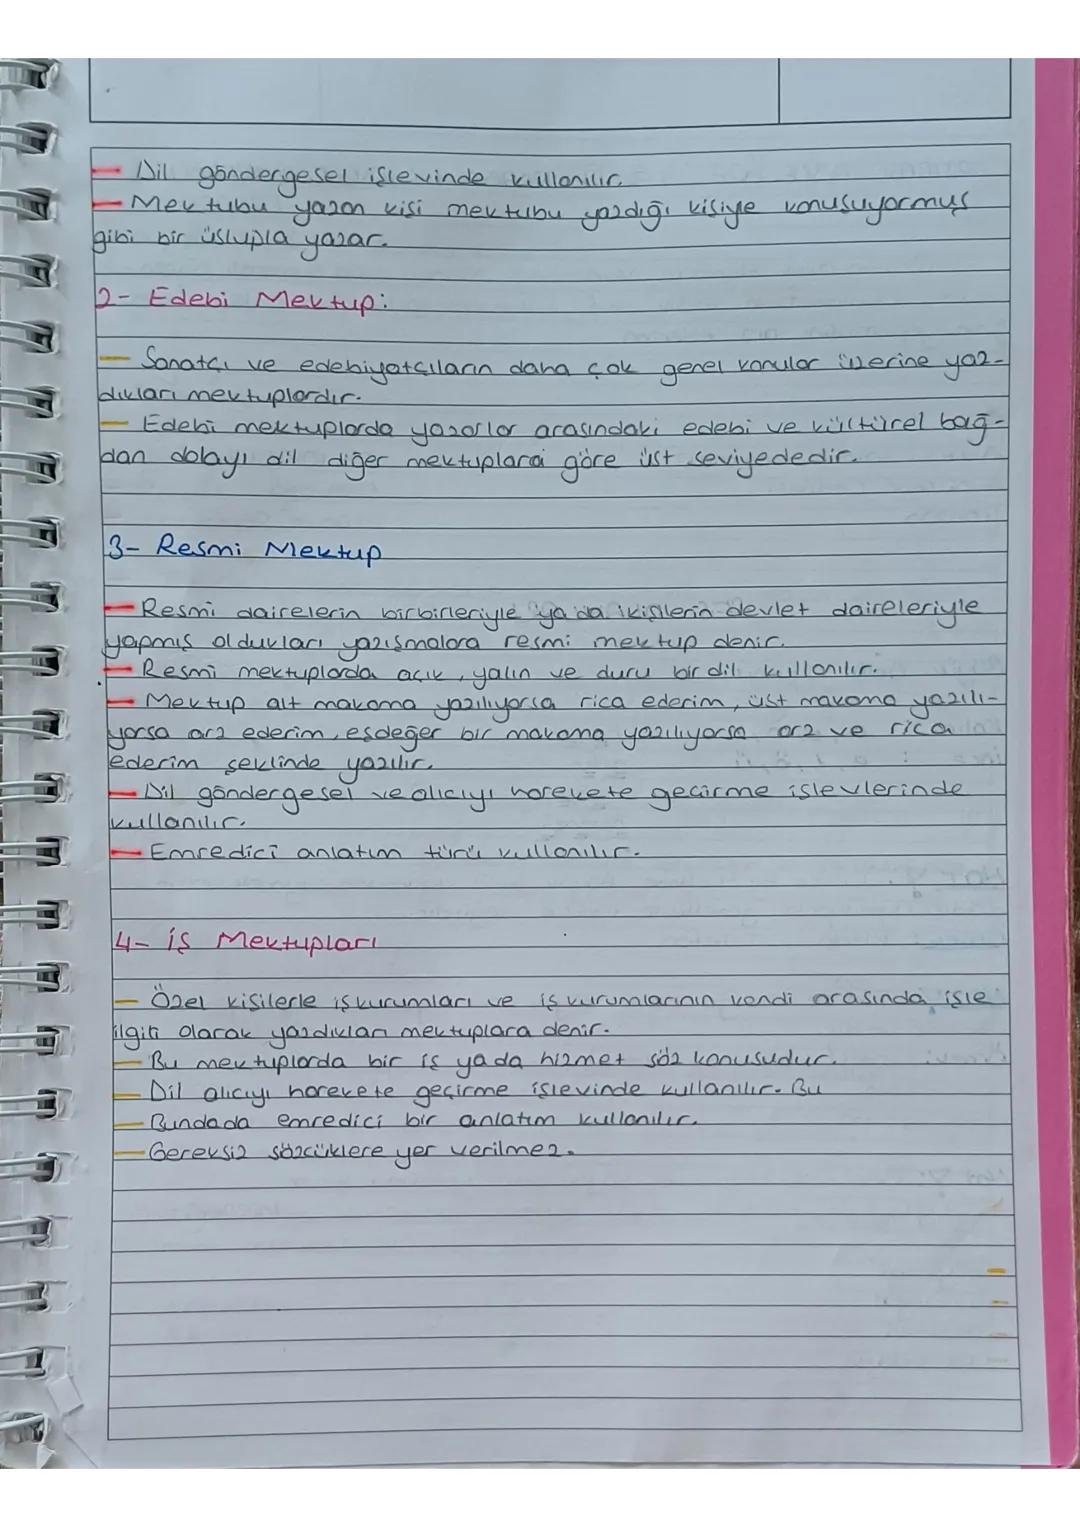 - Dil göndergesel işlevinde kullanılır.
- Mektubu yazan kişi mektubu yazdığı kişiyle konuşuyormuş
gibi bir üslupla yazar.
2- Edebi Mektup:
- Sanatçı ve edebiyatçıların daha çok genel konular üzerine yaz-
dıkları mektuplardır.
- Edebi mektuplarda yazarlar arasındaki edebi ve kültürel bağ-
dan dolayı dil diğer mektuplara göre üst seviyededir.
3- Resmi Mektup
- Resmi dairelerin birbirleriyle ya da kişilerin devlet daireleriyle
yapmış oldukları yazışmalara resmi mektup denir.
- Resmi mektuplarda açık, yalın ve duru bir dil kullanılır.
- Mektup alt makama yazılıyorsa rica ederim, üst makama yazılı-
yorsa arz ederim, eşdeğer bir makama yazılıyorsa arz ve rica
ederim şeklinde yazılır.
- Dil göndergesel ve alıcıyı harekete geçirme işlevlerinde
kullanılır.
- Emredici anlatım türü kullanılır.
4- İş Mektupları
- Özel kişilerle iş kurumları ve iş kurumlarının kendi arasında işle
ilgili olarak yazdıkları mektuplara denir.
- Bu mektuplarda bir iş ya da hizmet söz konusudur.
- Dil alıcıyı harekete geçirme işlevinde kullanılır. Bu
- Bundada emredici bir anlatım kullanılır.
- Gereksiz sözcüklere yer verilmez.